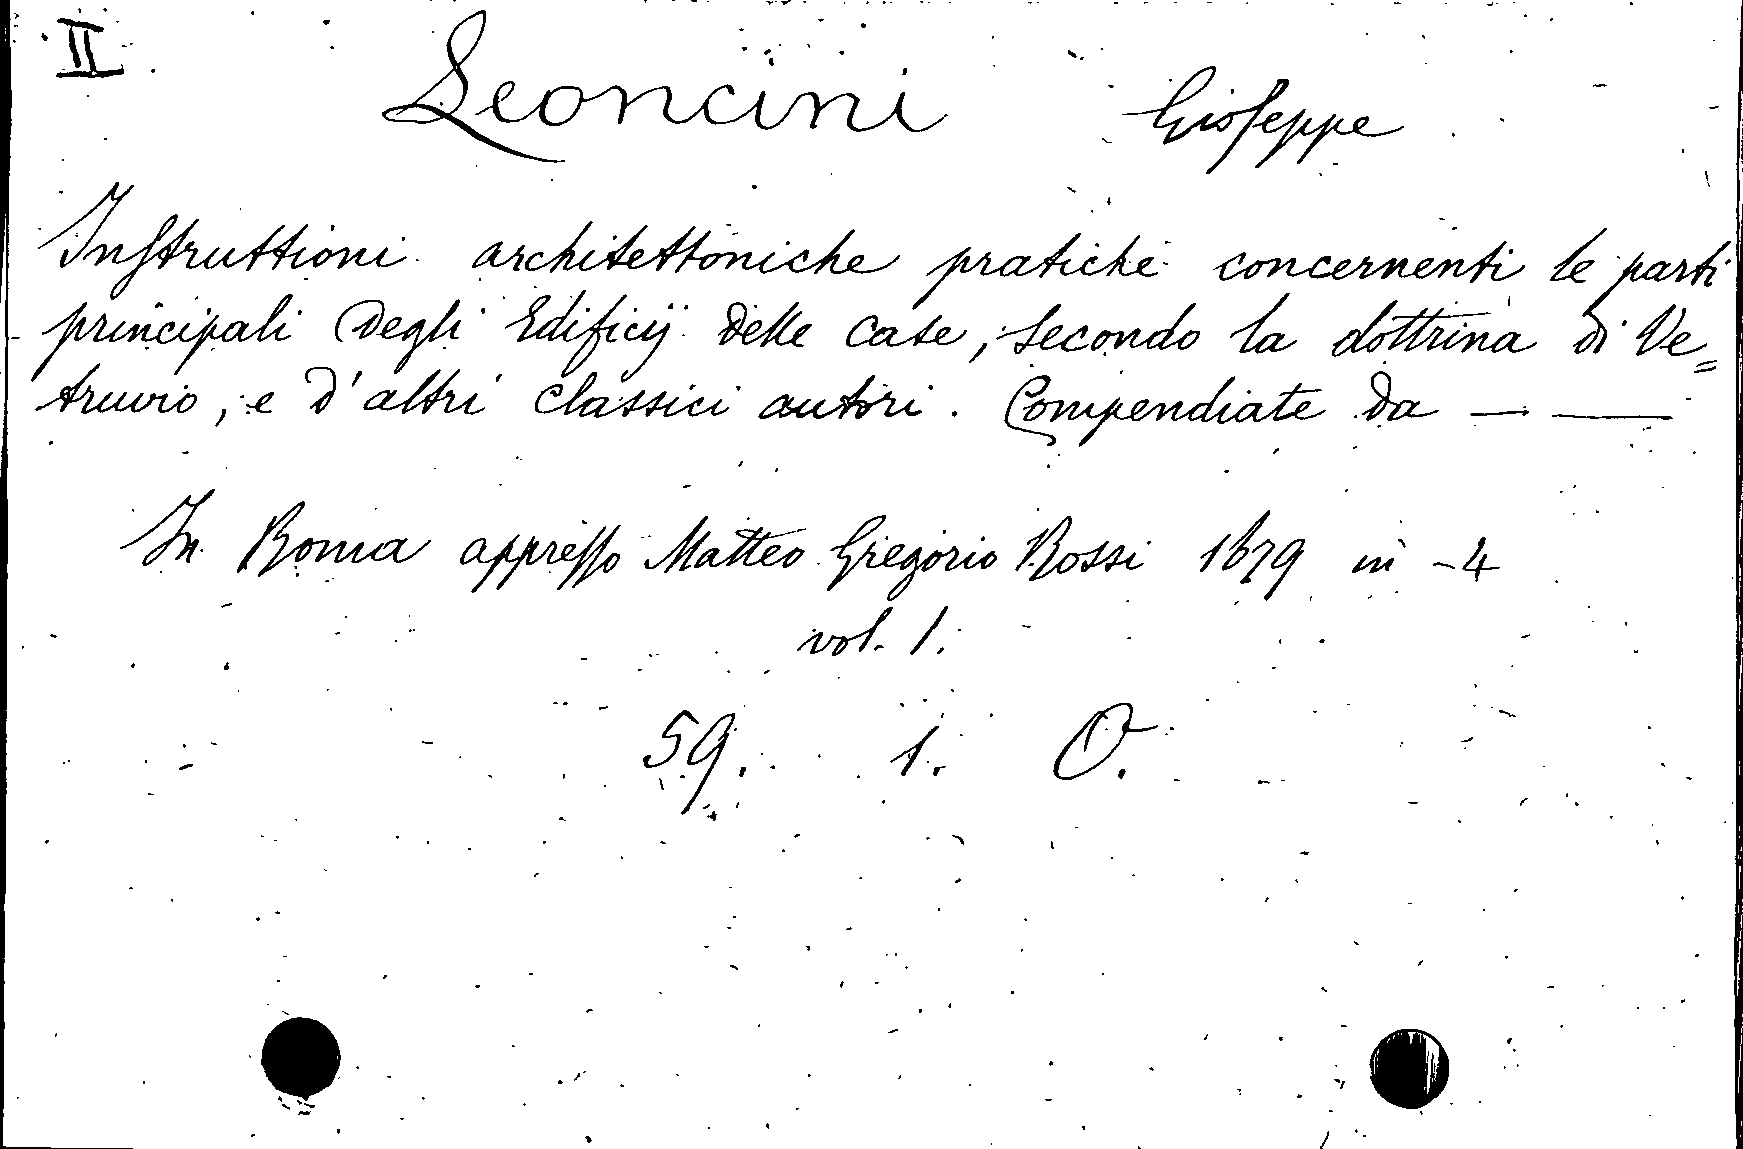 II
Leoncini Gioseppe
Instruttioni architettoniche pratiche concernenti le parti
principali degli Edificij delle case, secondo la dottrina di Ve=
truvio, e d'altri classici autori. Compendiate da — —
In Roma appresso Matteo Gregorio Rossi 1679 in -4
vol. 1.
59. 1. O.